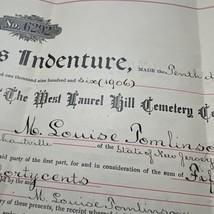 No. 6292
s Indenture, MADE the Tenth
and one thousand nine hundred and six (1906)
The West Laurel Hill Cemetery C
M. Louise Tomlinso
of the State of New Jersey
said party of the first part, for and in consideration of the sum of Fif
ty cents
M. Louise Tomlinson
of these presents, the receipt whereof is